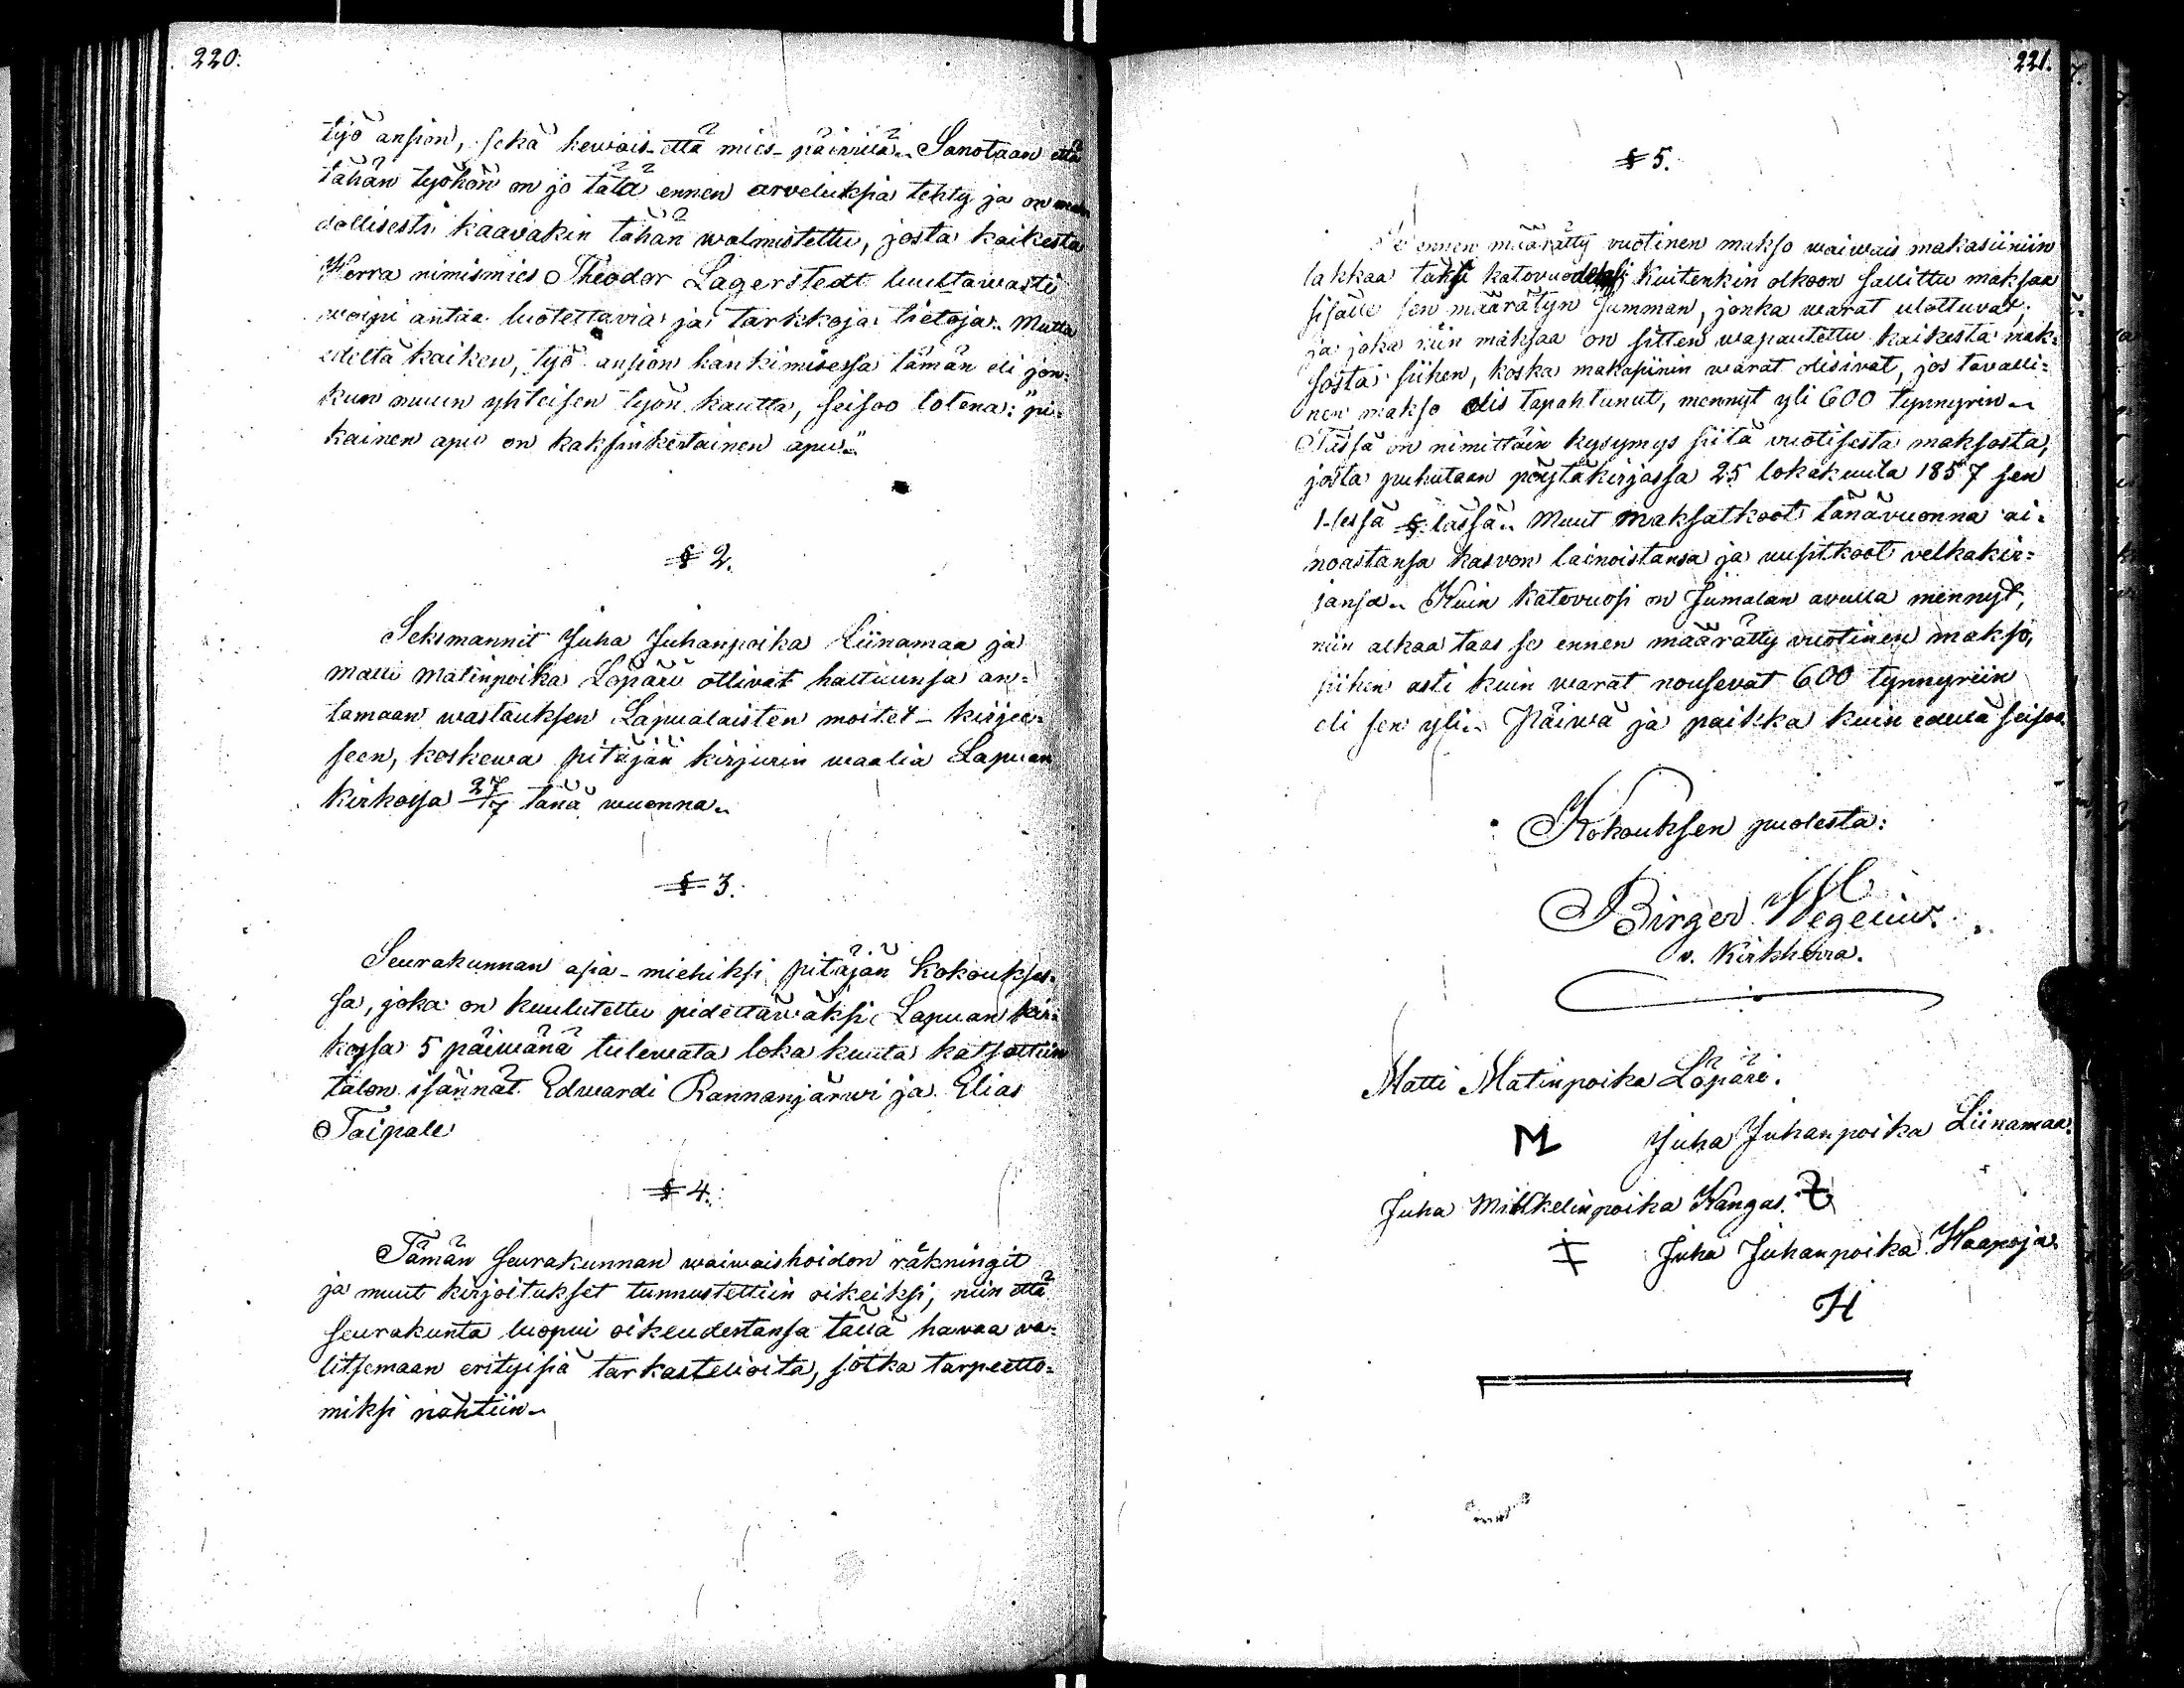 220.
työ ansion, sekä hewois- että mies-päiwiä. Sanotaan että
tähän työhön on jo tätä ennen arveluksia tehty ja on mah
dollisesti kaavakin tähän walmistettu, josta kaikesta
Herra nimismies Theodor Lagerstedt luultawasti
woipi antaa luotettavia ja tarkkoja tietoja. Mutta
edeltä kaiken, työ ansion hankimisessa tämän eli jon-
kun muun yhteisen työn kautta, seisoo totena: "pi-
kainen apu on kaksinkertainen apu."
§ 2.
Seksmannit Juha Juhanpoika Liinamaa ja
Matti Matinpoika Löpäri ottivat haltuunsa an-
tamaan wastauksen Lapualaisten moitet-kirjee-
seen, koskewa pitäjän kirjurin waalia Lapuan
kirkossa 27/7 tänä wuonna.
§ 3.
Seurakunnan asia-miehiksi pitäjän kokoukses-
sa, joka on kuulutettu pidettäwäksi Lapuan kir-
kossa 5 päiwänä tulewata lokakuuta katsottiin
talon isännät Edwardi Rannanjärwi ja Elias
Taipale
§ 4.
Tämän seurakunnan waiwaishoidon räkningit
ja muut kirjoitukset tunnustettiin oikeiksi, niin että
seurakunta luopui oikeudestansa tällä hawaa va-
litsemaan erityisiä tarkastelioita, jotka tarpeetto-
miksi nähtiin.
221.
§ 5.
Se ennen määrätty vuotinen makso waiwais makasiiniin
lakkaa täksi katovuodeksi Kuitenkin olkoon sallittu maksaa
sisälle sen määrätyn summan, jonka warat ulottuvat,
ja joka niin maksaa on sitten wapautettu kaikesta mak-
sosta siihen, koska makasiinin warat olisivat, jos tavalli-
nen makso olis tapahtunut, mennyt yli 600 tynnyrin.
Tässä on nimittäin kysymys siitä vuotisesta maksosta,
josta puhutaan pöytäkirjassa 25 lokakuuta 1857 sen
1-sessä § lässä. Muut maksatkoot tänävuonna ai-
noastansa kasvon lainoistansa ja uusitkoot velkakir-
jansa. Kuin katovuosi on Jumalan avulla mennyt,
niin alkaa taas se ennen määrätty vuotinen makso,
siihen asti kuin warat nousevat 600 tynnyriin
eli sen yli. Päiwä ja paikka kuin edellä seisoo
Kokouksen puolesta:
Birger Wegelius.
v. Kirkkoherra.
Matti Matinpoika Löpäri.
M Juha Juhanpoika Liinamaa.
Juha Mikkelinpoika Kangas.
Juha Juhanpoika Haapoja
H